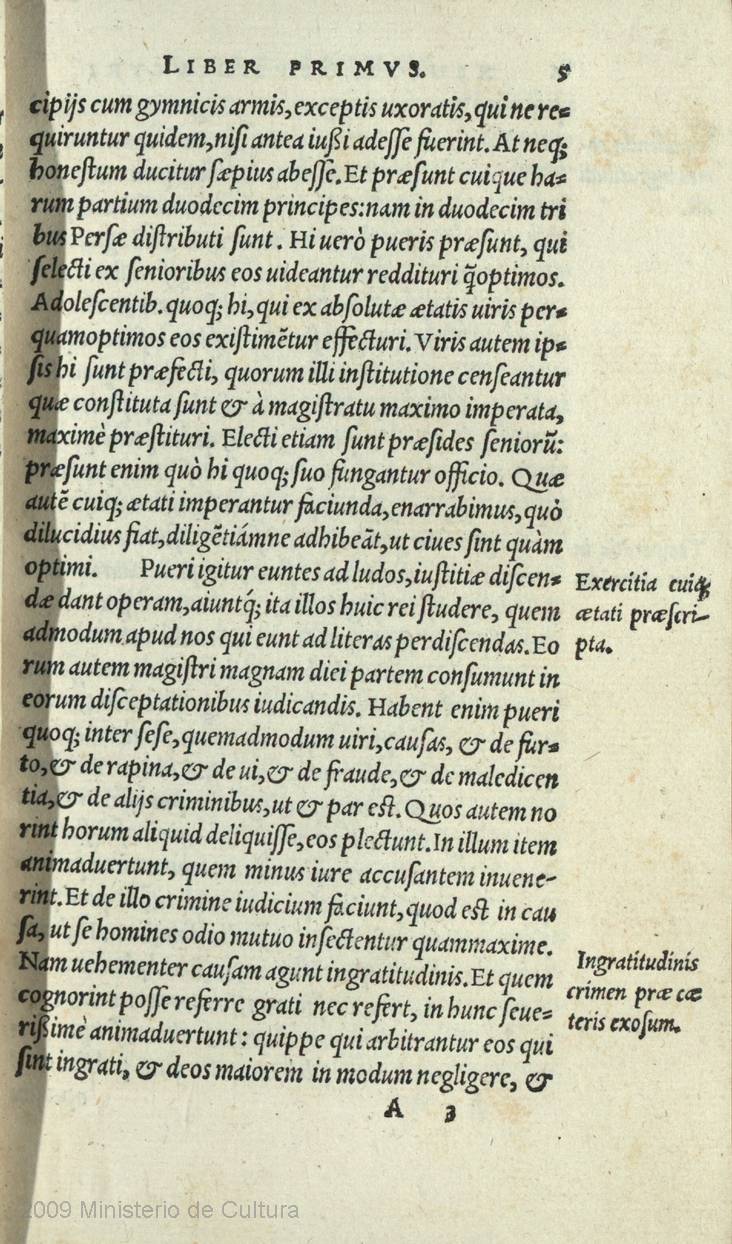 LIBER PRIMVS. 5
cipijs cum gymnicis armis, exceptis uxoratis, qui ne re=
quiruntur quidem, nisi antea iußi adesse fuerint. At neq;
honestum ducitur sæpius abesse. Et præsunt cuique ha=
rum partium duodecim principes: nam in duodecim tri
bus Persæ distributi sunt. Hi uerò pueris præsunt, qui
selecti ex senioribus eos uideantur reddituri q̃optimos.
Adolescentib. quoq; hi, qui ex absolutæ ætatis uiris per=
quamoptimos eos existimẽtur effecturi. Viris autem ip=
sis hi sunt præfecti, quorum illi institutione censeantur
quæ constituta sunt & à magistratu maximo imperata,
maximè præstituri. Electi etiam sunt præsides seniorũ:
præsunt enim quò hi quoq; suo fungantur officio. Quæ
autẽ cuiq; ætati imperantur faciunda, enarrabimus, quò
dilucidius fiat, diligẽtiámne adhibeãt, ut ciues sint quàm
optimi. Pueri igitur euntes ad ludos, iustitiæ discen=
dæ dant operam, aiuntq́; ita illos huic rei studere, quem
admodum apud nos qui eunt ad literas perdiscendas. Eo
rum autem magistri magnam diei partem consumunt in
eorum disceptationibus iudicandis. Habent enim pueri
quoq; inter sese, quemadmodum uiri, causas, & de fur=
to, & de rapina, & de ui, & de fraude, & de maledicen
tia, & de alijs criminibus, ut & par est. Quos autem no
rint horum aliquid deliquisse, eos plectunt. In illum item
animaduertunt, quem minus iure accusantem inuene-
rint. Et de illo crimine iudicium faciunt, quod est in cau
sa, ut se homines odio mutuo insectentur quammaxime.
Nam uehementer causam agunt ingratitudinis. Et quem
cognorint posse referre grati nec refert, in hunc seue=
rißimè animaduertunt: quippe qui arbitrantur eos qui
sint ingrati, & deos maiorem in modum negligere, &
A 3
Exercitia cuiq;
ætati præscri-
pta.
Ingratitudinis
crimen præ cæ
teris exosum.
2009 Ministerio de Cultura